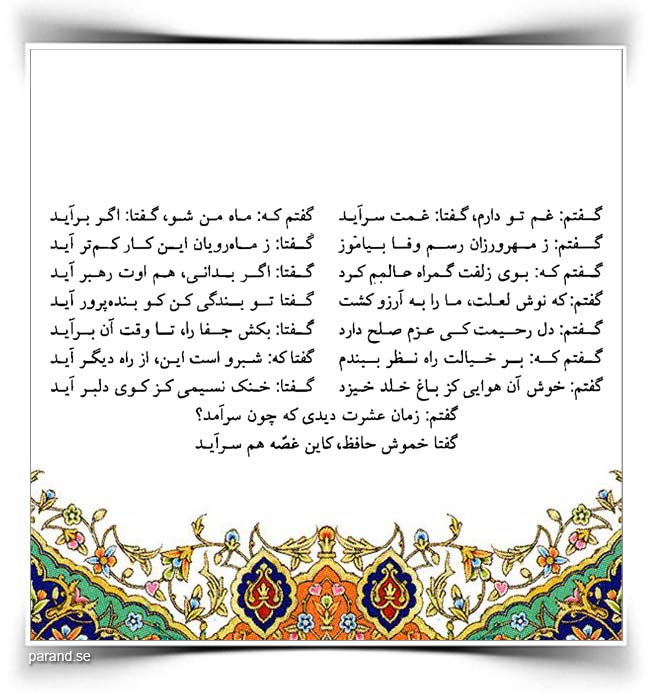 گفتم: غم تو دارم، گفتا: غمت سرآید گفتم که: ماه من شو، گفتا: اگر برآید
گفتم: ز مهرورزان رسم وفا بیاموز گفتا: ز ماه‌رویان این کار کم‌تر آید
گفتم که: بوی زلفت گمراه عالمم کرد گفتا: اگر بدانی، هم اوت رهبر آید
گفتم: که نوش لعلت، ما را به آرزو کشت گفتا تو بندگی کن کو بنده‌پرور آید
گفتم: دل رحیمت کی عزم صلح دارد گفتا: بکش جفا را، تا وقت آن برآید
گفتم که: بر خیالت راه نظر ببندم گفتا که: شبرو است این، از راه دیگر آید
گفتم: خوش آن هوایی کز باغ خلد خیزد گفتا: خنک نسیمی کز کوی دلبر آید
گفتم: زمان عشرت دیدی که چون سرآمد؟
گفتا خموش حافظ، کاین غصّه هم سرآید
parand.se